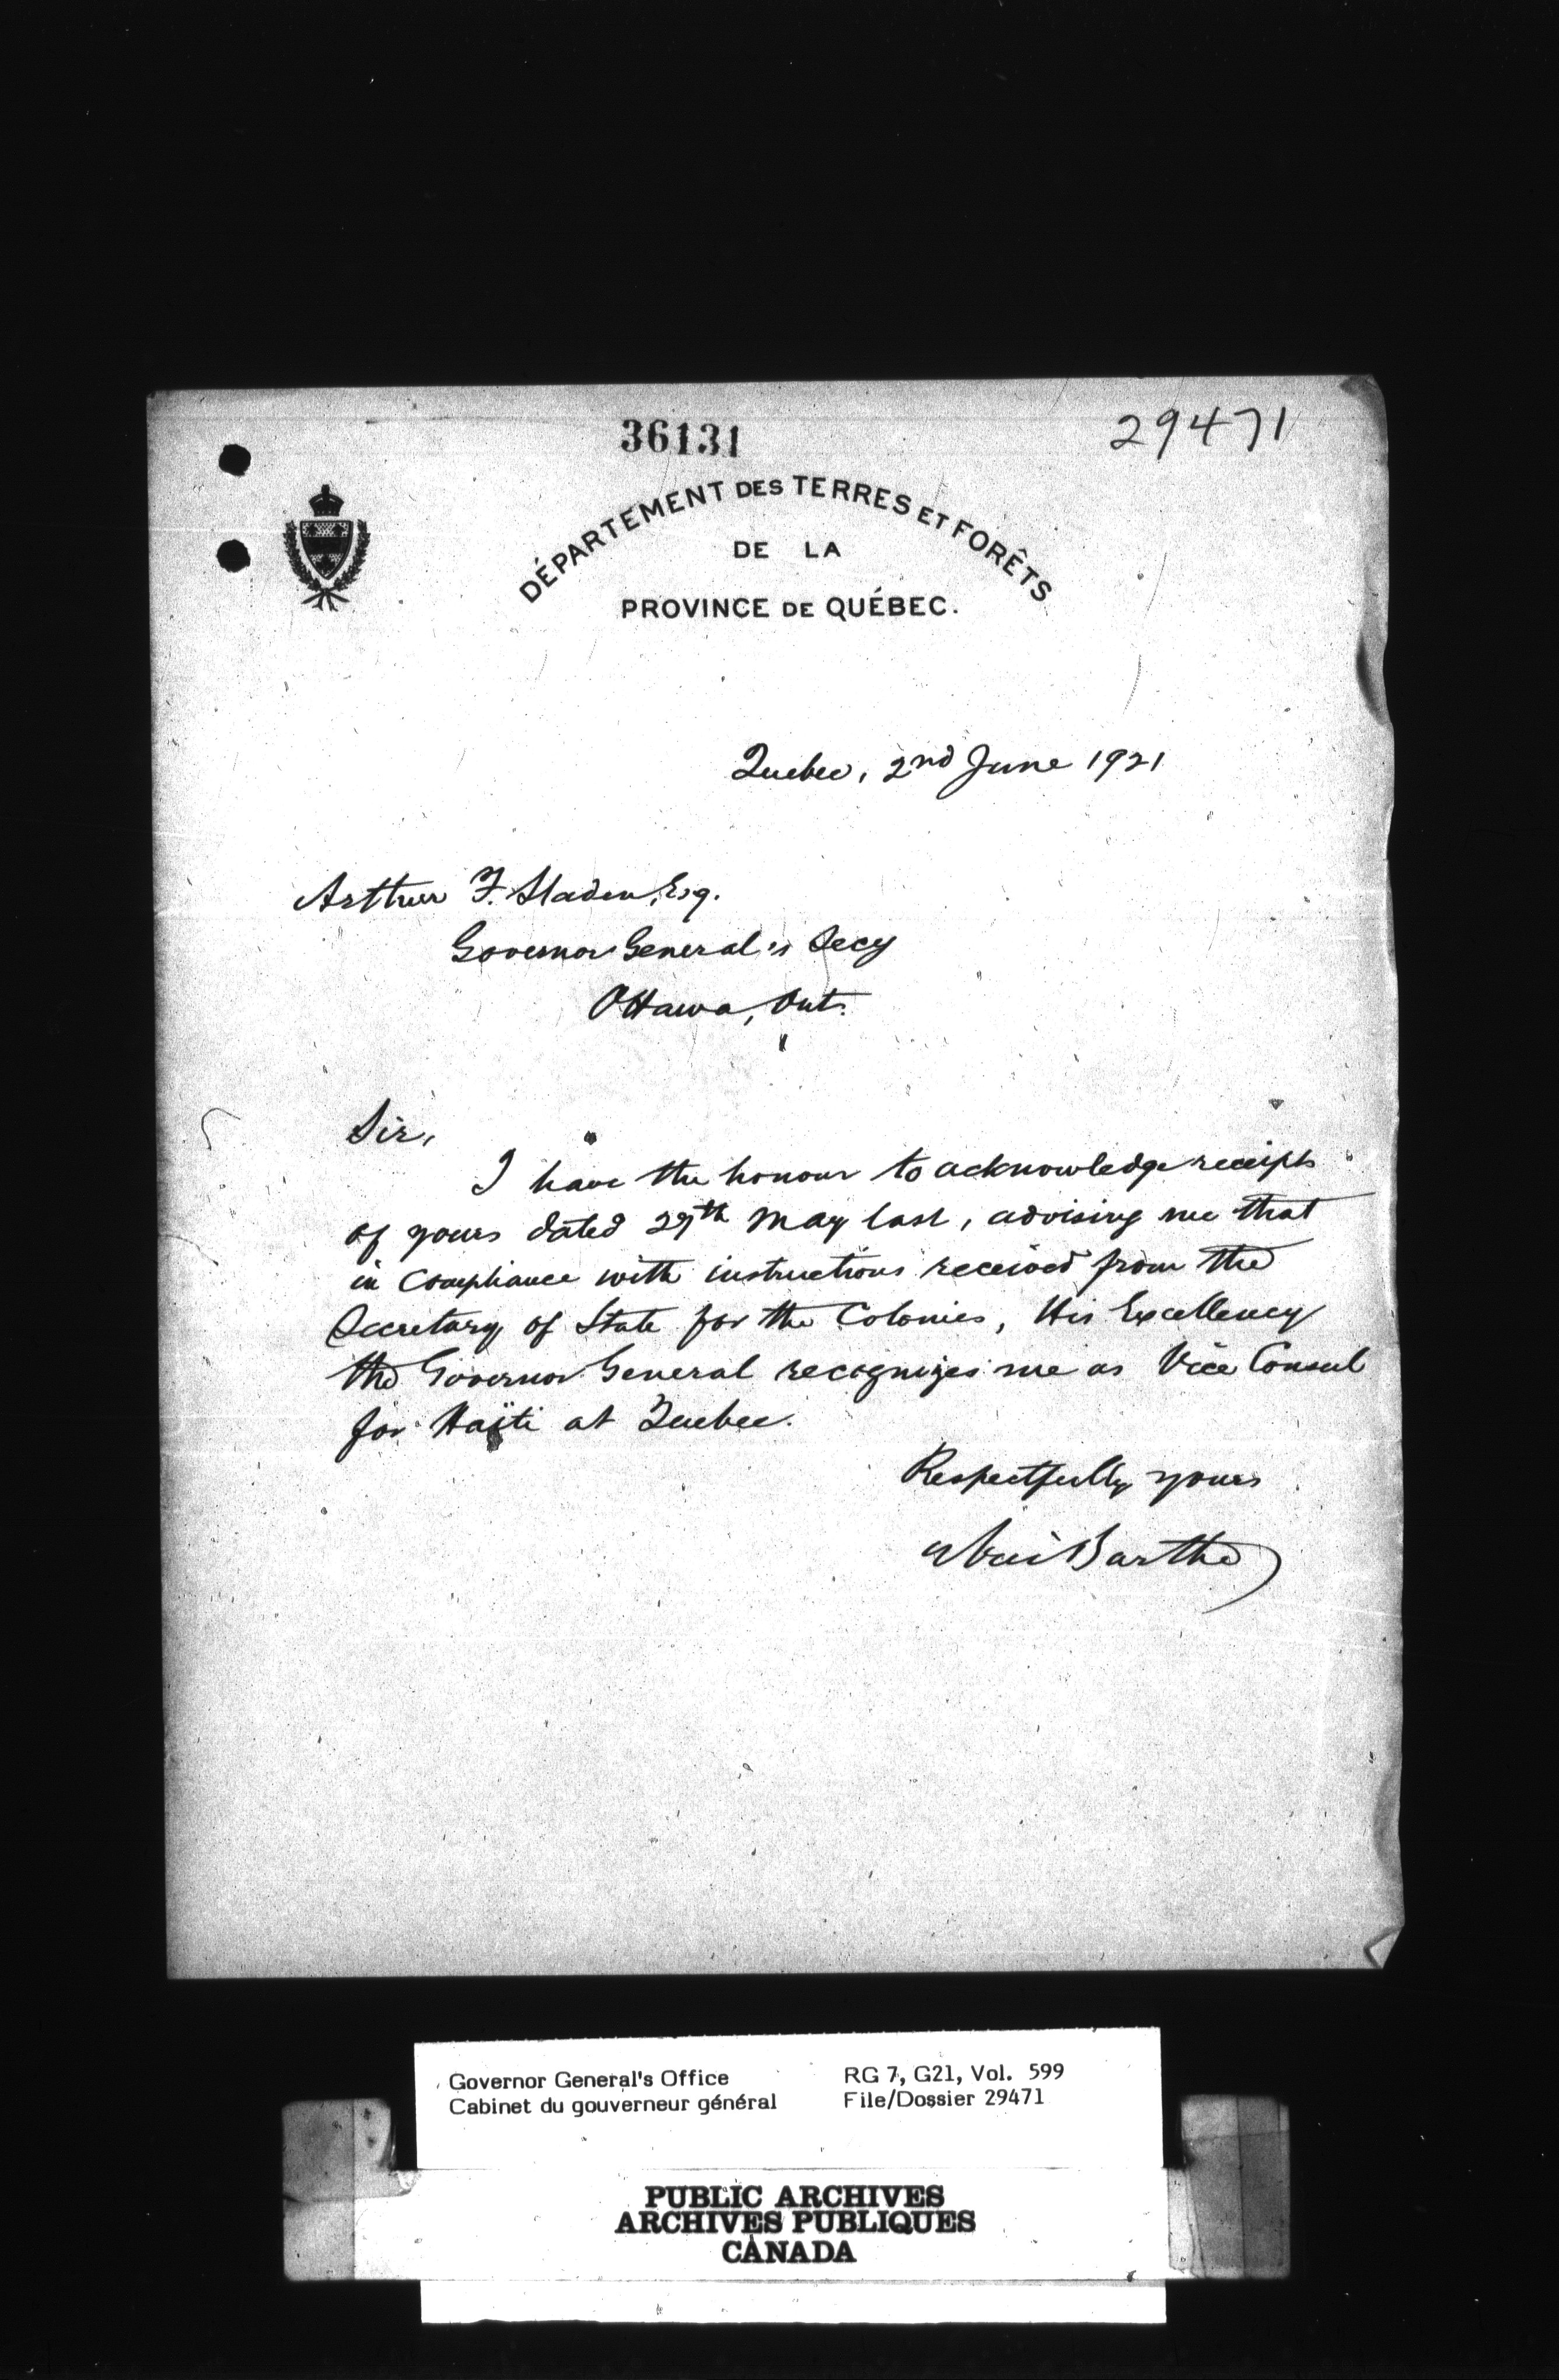 36131
29471
DÉPARTEMENT DES TERRES ET FORÊTS
DE LA
PROVINCE DE QUÉBEC.
Quebec, 2nd June 1921
Arthur F. Sladen, Esq.
Governor General's Secy
Ottawa, Ont.
Sir,
I have the honour to acknowledge receipt
of yours dated May last, advising me that
in compliance with instructions received from the
Secretary of State for the Colonies, His Excellency
the Governor General recognizes me as Vice Consul
for Haïti at Quebec.
Respectfully yours
Barthe
Governor General's Office
Cabinet du gouverneur général
RG 7, G21, Vol. 599
File/Dossier 29471
PUBLIC ARCHIVES
ARCHIVES PUBLIQUES
CANADA